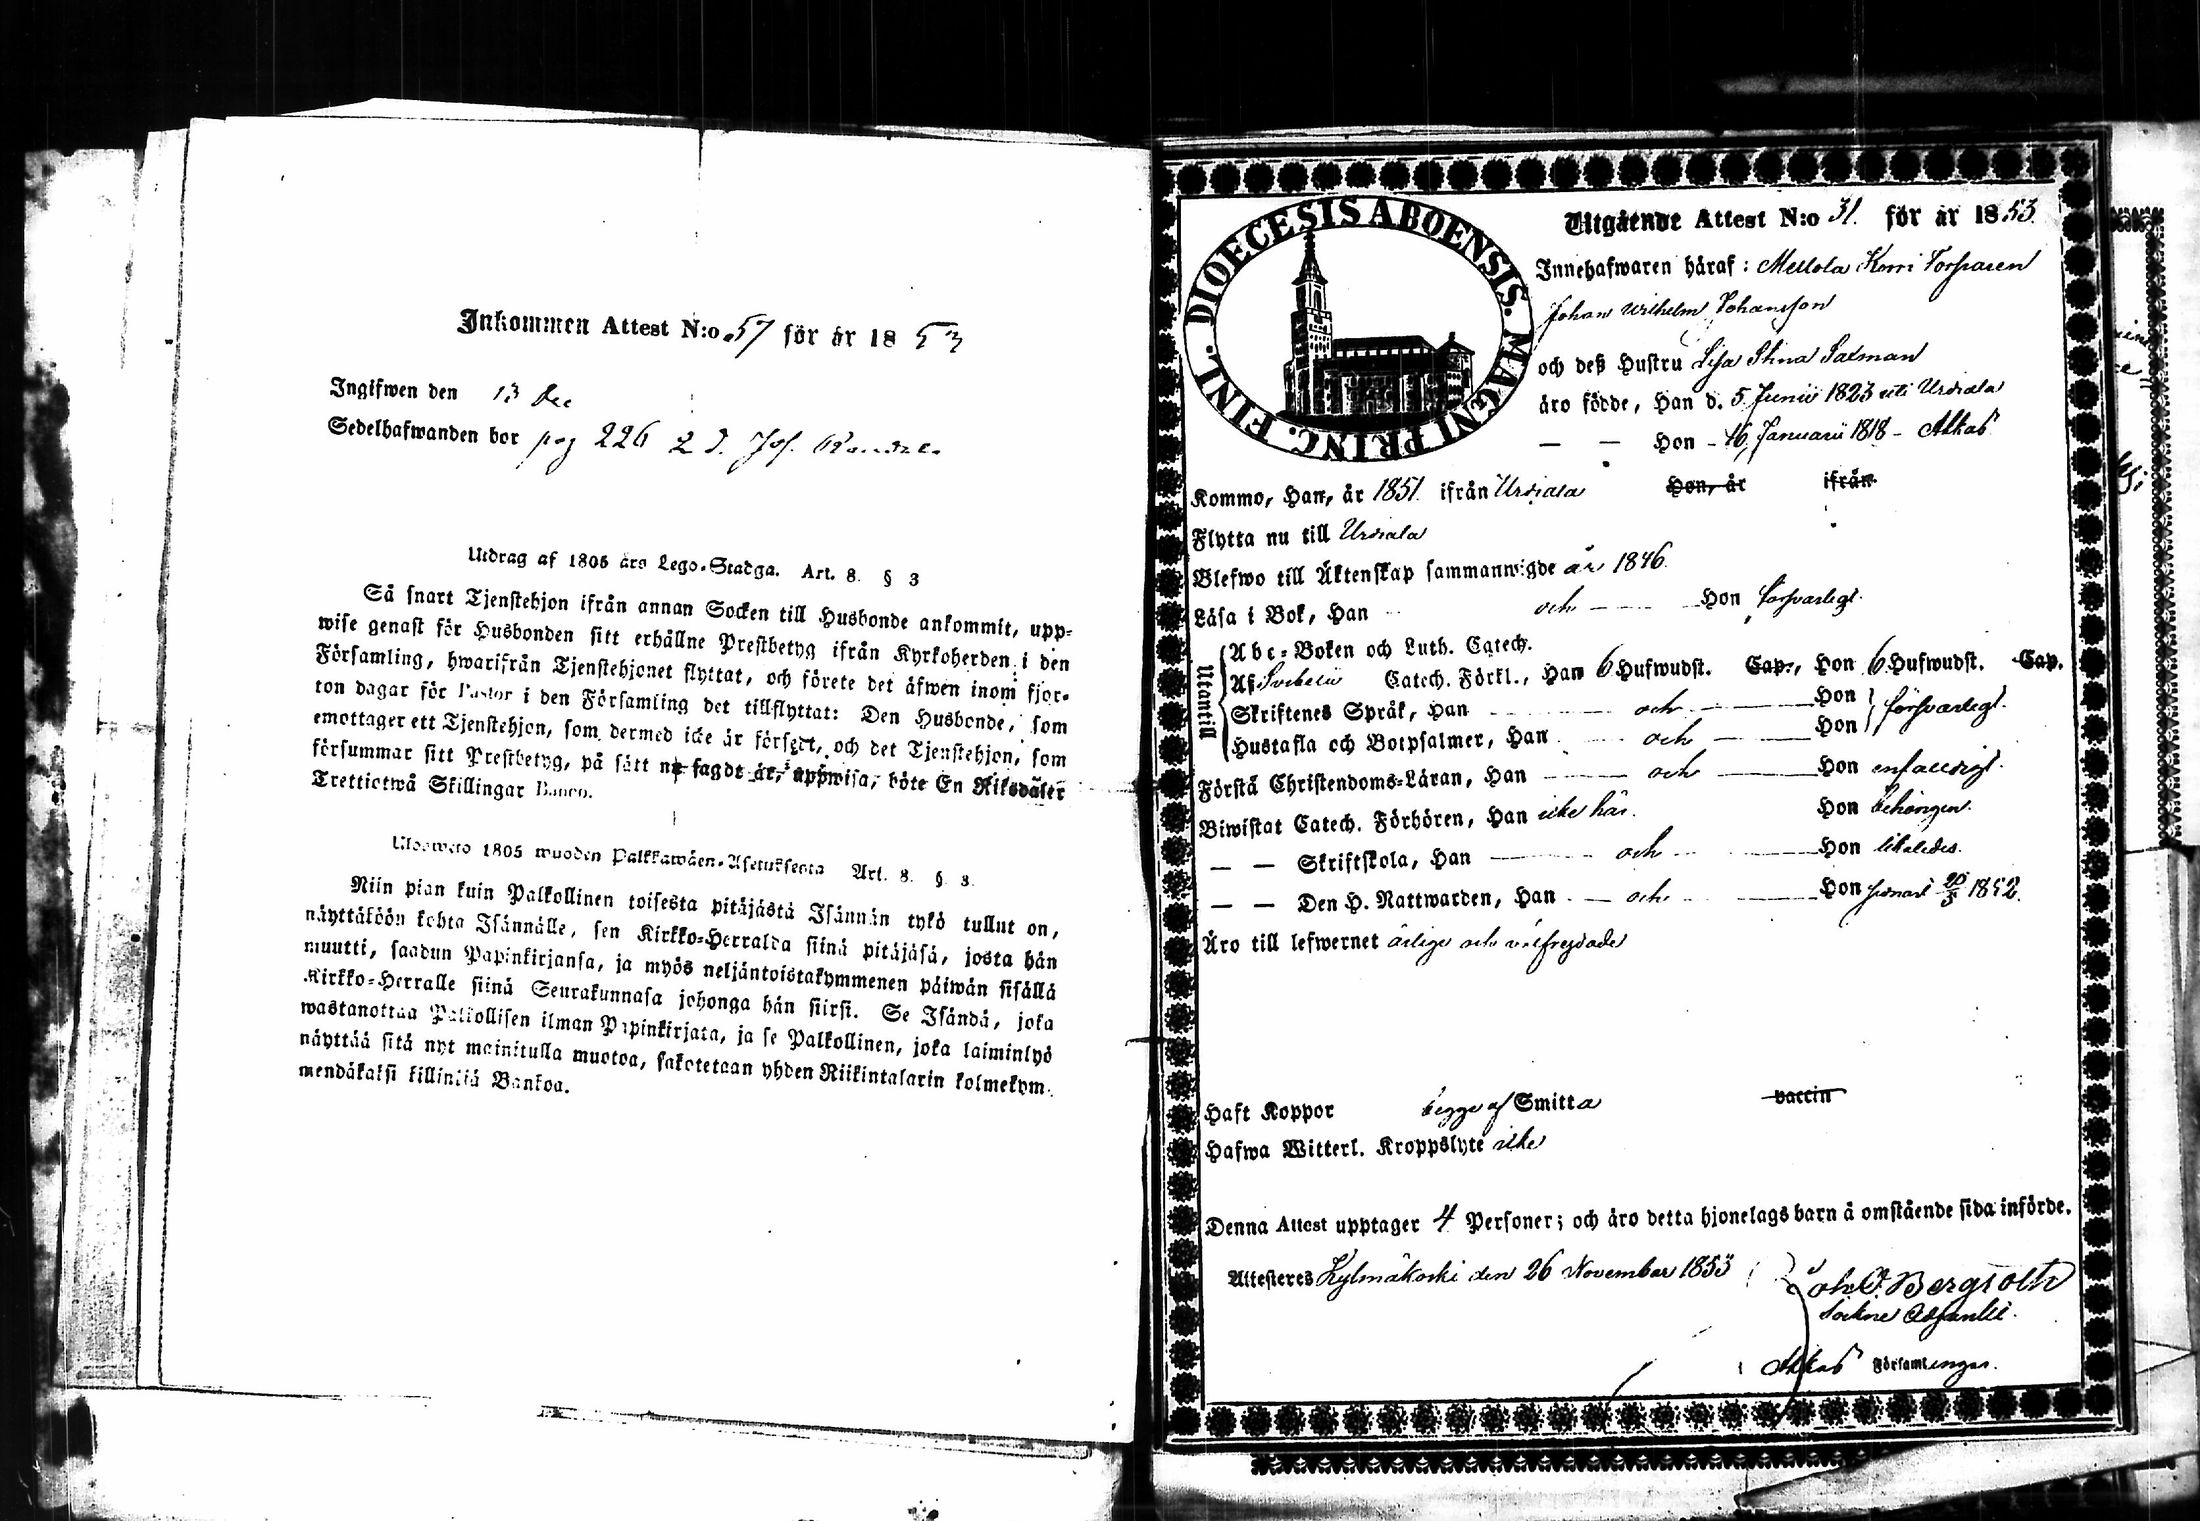 Inkommen Attest N:o 57 för år 1853
Ingifwen den 13 Dec
Sedelhafwanden bor pag 226
Utdrag af 1805 års Lego-Stadga. Art. 8. § 3
Så snart Tjenstehjon ifrån annan Socken till Husbonde ankommit, upp-
wise genast för Husbonden sitt erhållne Prestbetyg ifrån Kyrkoherden i den
Församling, hwarifrån Tjenstehjonet flyttat, och förete det äfwen inom fjor-
ton dagar för Pastor i den Församling det tillflyttat: Den Husbonde, som
emottager ett Tjenstehjon, som dermed icke är försedt, och det Tjenstehjon, som
försummar sitt Prestbetyg, på sätt nu sagdt är, uppwisa, böte En Riksdaler
Trettiotwå Skillingar Banco.
Ulosweto 1805 wuoden Palkkawäen-Asetuksesta Art. 8. §. 3.
Niin pian kuin Palkollinen toisesta pitäjästä Isännän tykö tullut on,
näyttäköön kohta Isännälle, sen Kirkko-Herralda siinä pitäjäsä, josta hän
muutti, saadun Papinkirjansa, ja myös neljäntoistakymmenen päiwän sisällä
Kirkko-Herralle siinä Seurakunnasa johonga hän siirsi. Se Isändä, joka
wastanottaa Palkollisen ilman Papinkirjata, ja se Palkollinen, joka laiminlyö
näyttää sitä nyt mainitulla muotoa, sakotetaan yhden Riikintalarin kolmekym-
mendäkaksi killinkiä Bankoa.
DIOECESIS ABOENSIS. MAGNI PRINC. FINL.
Utgående Attest N:o 31. för år 1853.
Innehafwaren häraf: Mellola Korri Torparen
Johan Wilhelm Johansson
och deß Hustru Lisa Stina Salman
äro födde, Han d. 5 Junii 1823 uti Urdiala
— — Hon - 16 Januarii 1818 - Akkas
Kommo, Han, år 1851 ifrån Urdiala Hon, år ifrån
Flytta nu till Urdiala
Blefwo till Äktenskap sammanwigde år 1846.
Läsa i Bok, Han och Hon försvarligt.
Utantill
Abc-Boken och Luth. Catech.
Af Svebelii Catech. Förkl., Han 6 Hufwudst. Cap., Hon 6 Hufwudst. Cap.
Skriftenes Språk, Han och Hon försvarligt.
Hustafla och Botpsalmer, Han och Hon
Förstå Christendoms-Läran, Han och Hon enfaldigt.
Biwistat Catech. Förhören, Han icke här. Hon behörigen.
— — Skriftskola, Han och Hon likaledes.
— — Den H. Nattwarden, Han och Hon senast 20/5 1852.
Äro till lefwernet ärlige och välfrejdade
Haft Koppor begge af Smitta vaccin
Hafwa Witterl. Kroppslyte icke
Denna Attest upptager 4 Personer; och äro detta hjonelags barn å omstående sida införde.
Attesteres Kylmäkoski den 26 November 1853
Joh. O. Bergroth
Sockne Adjunkt.
Akkas Församlingar.